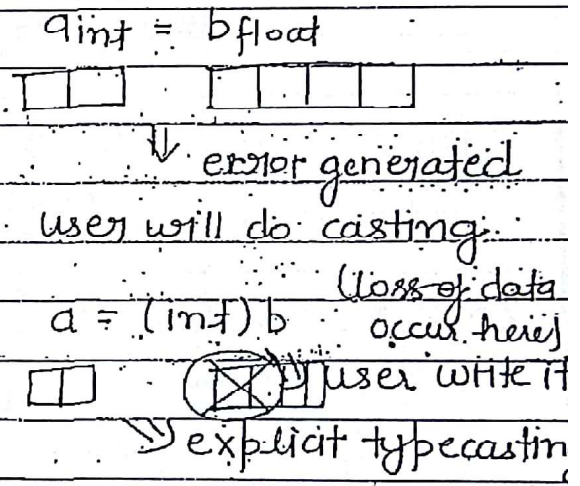 a int = b float
error generated
user will do casting
(loss of data
a = (int) b occur here)
user write it
explicit typecasting